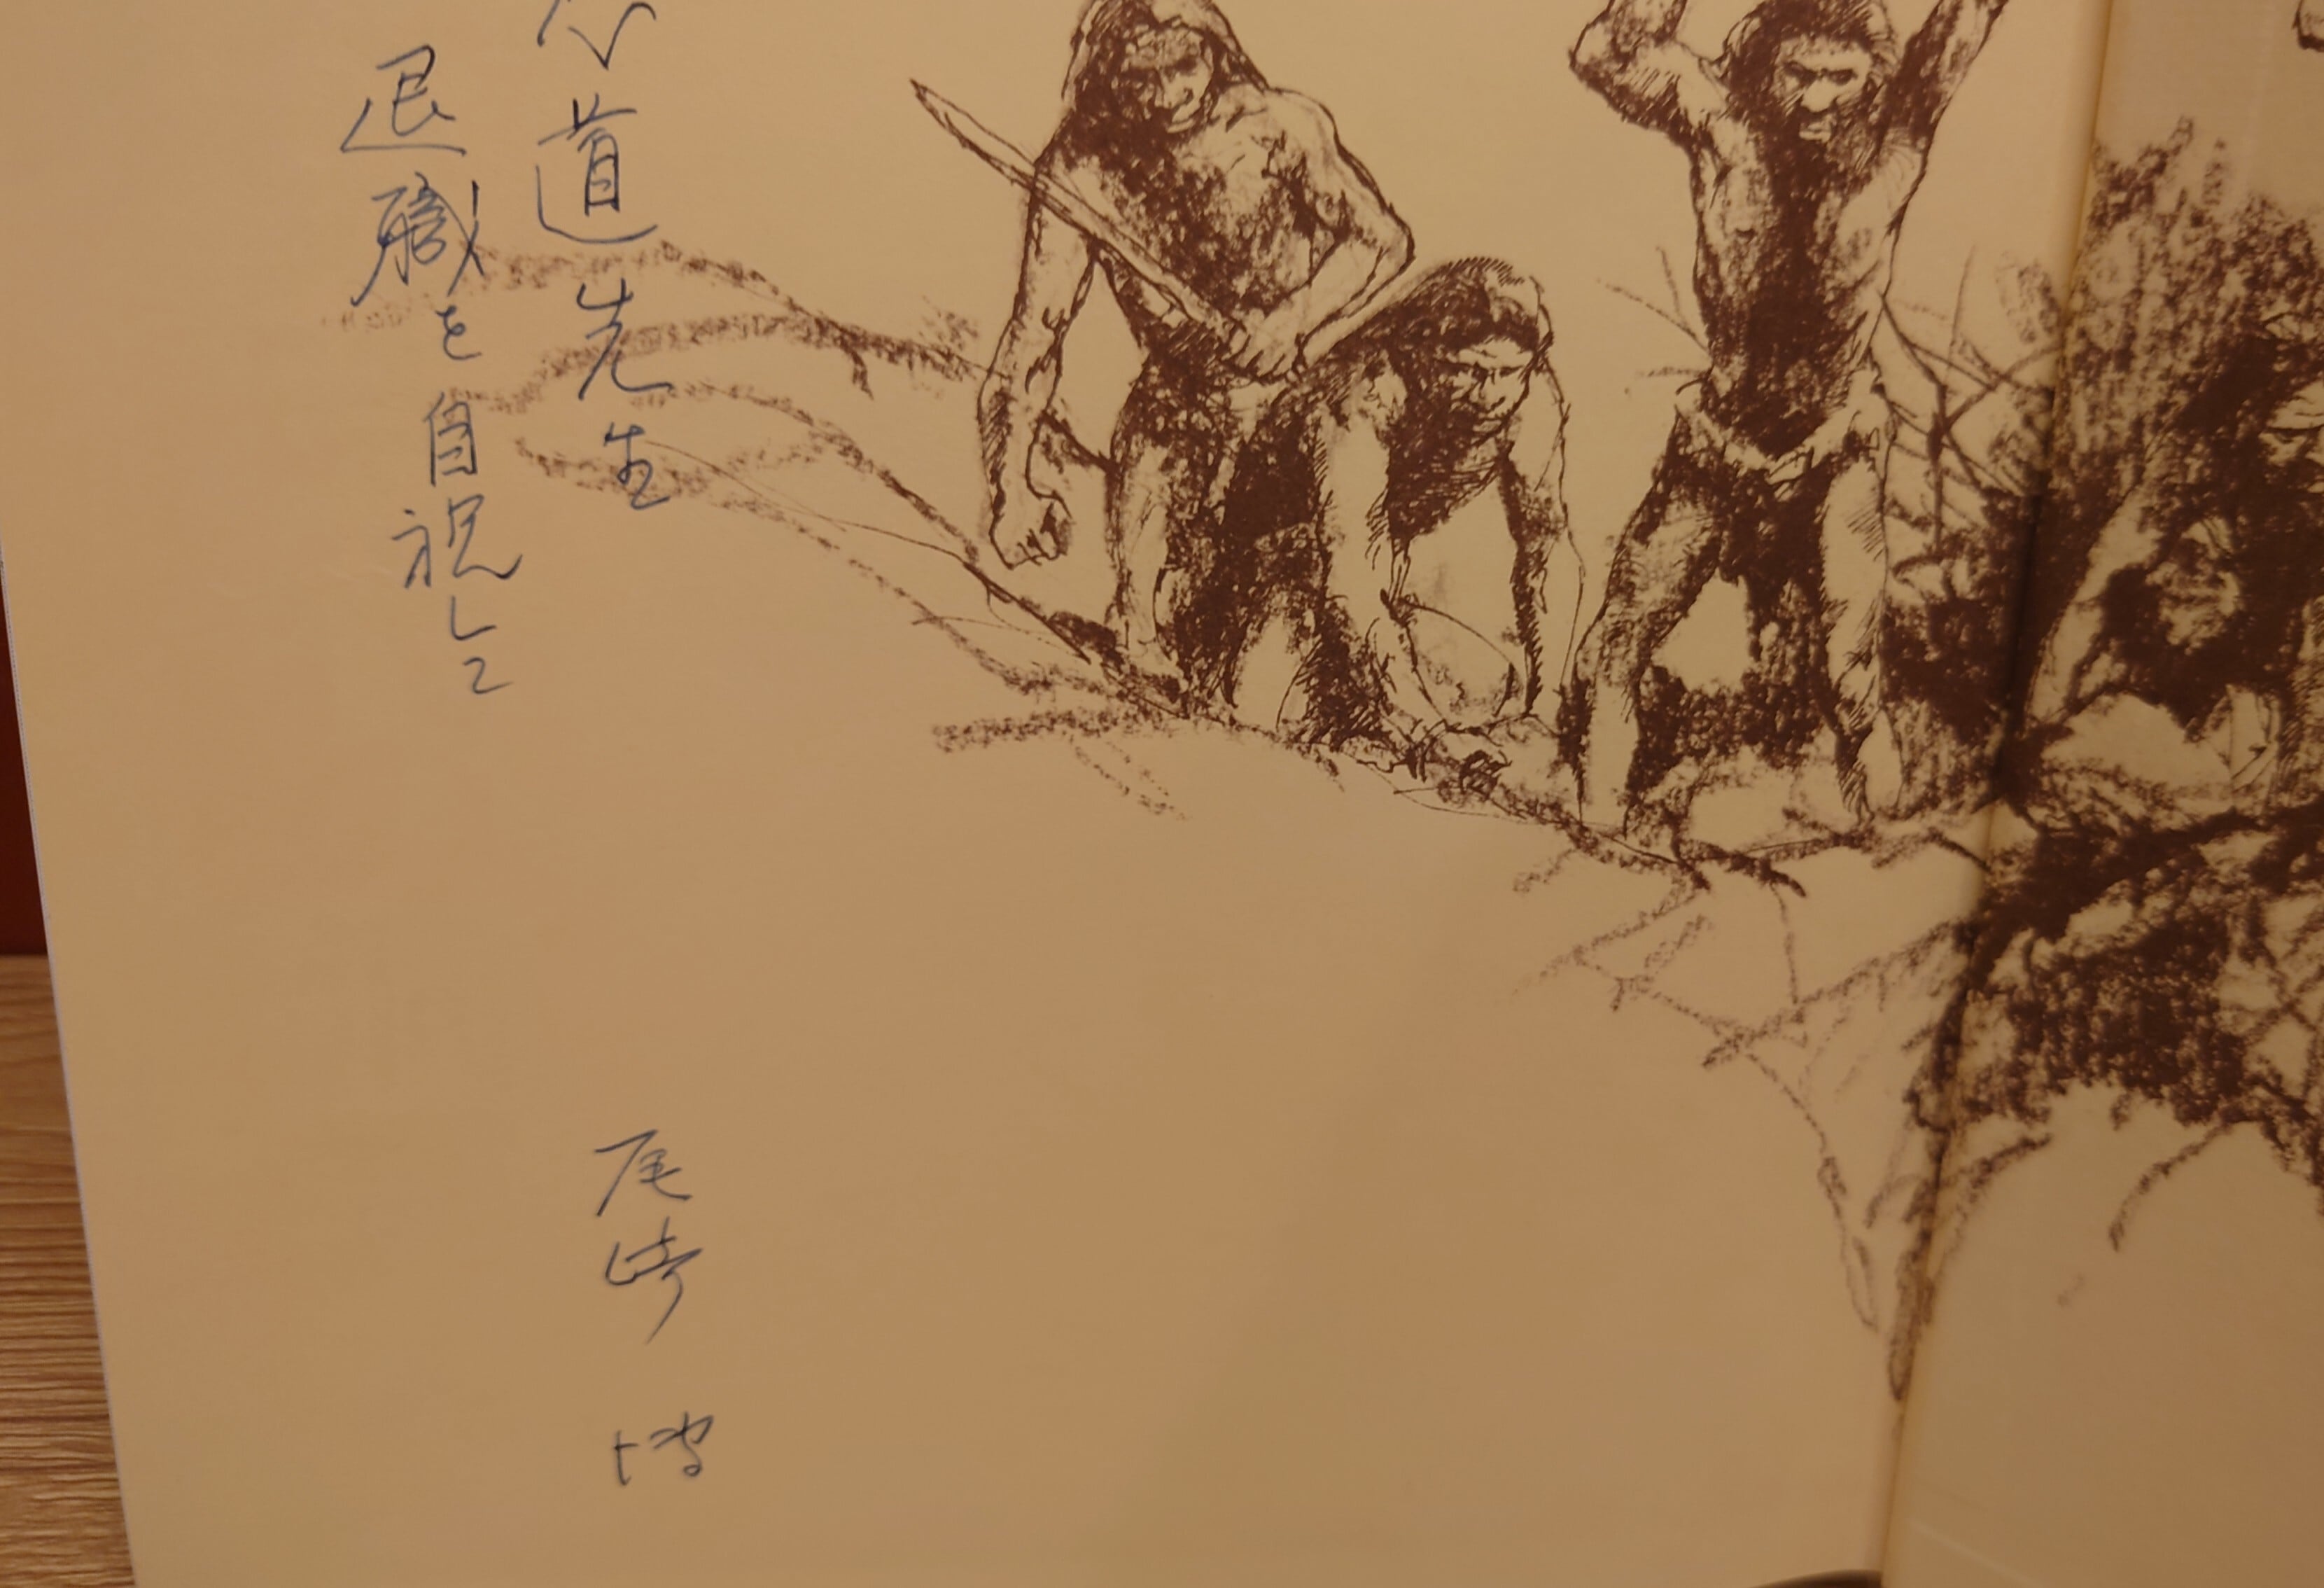 道先生
退職を自祝して
尾崎 博